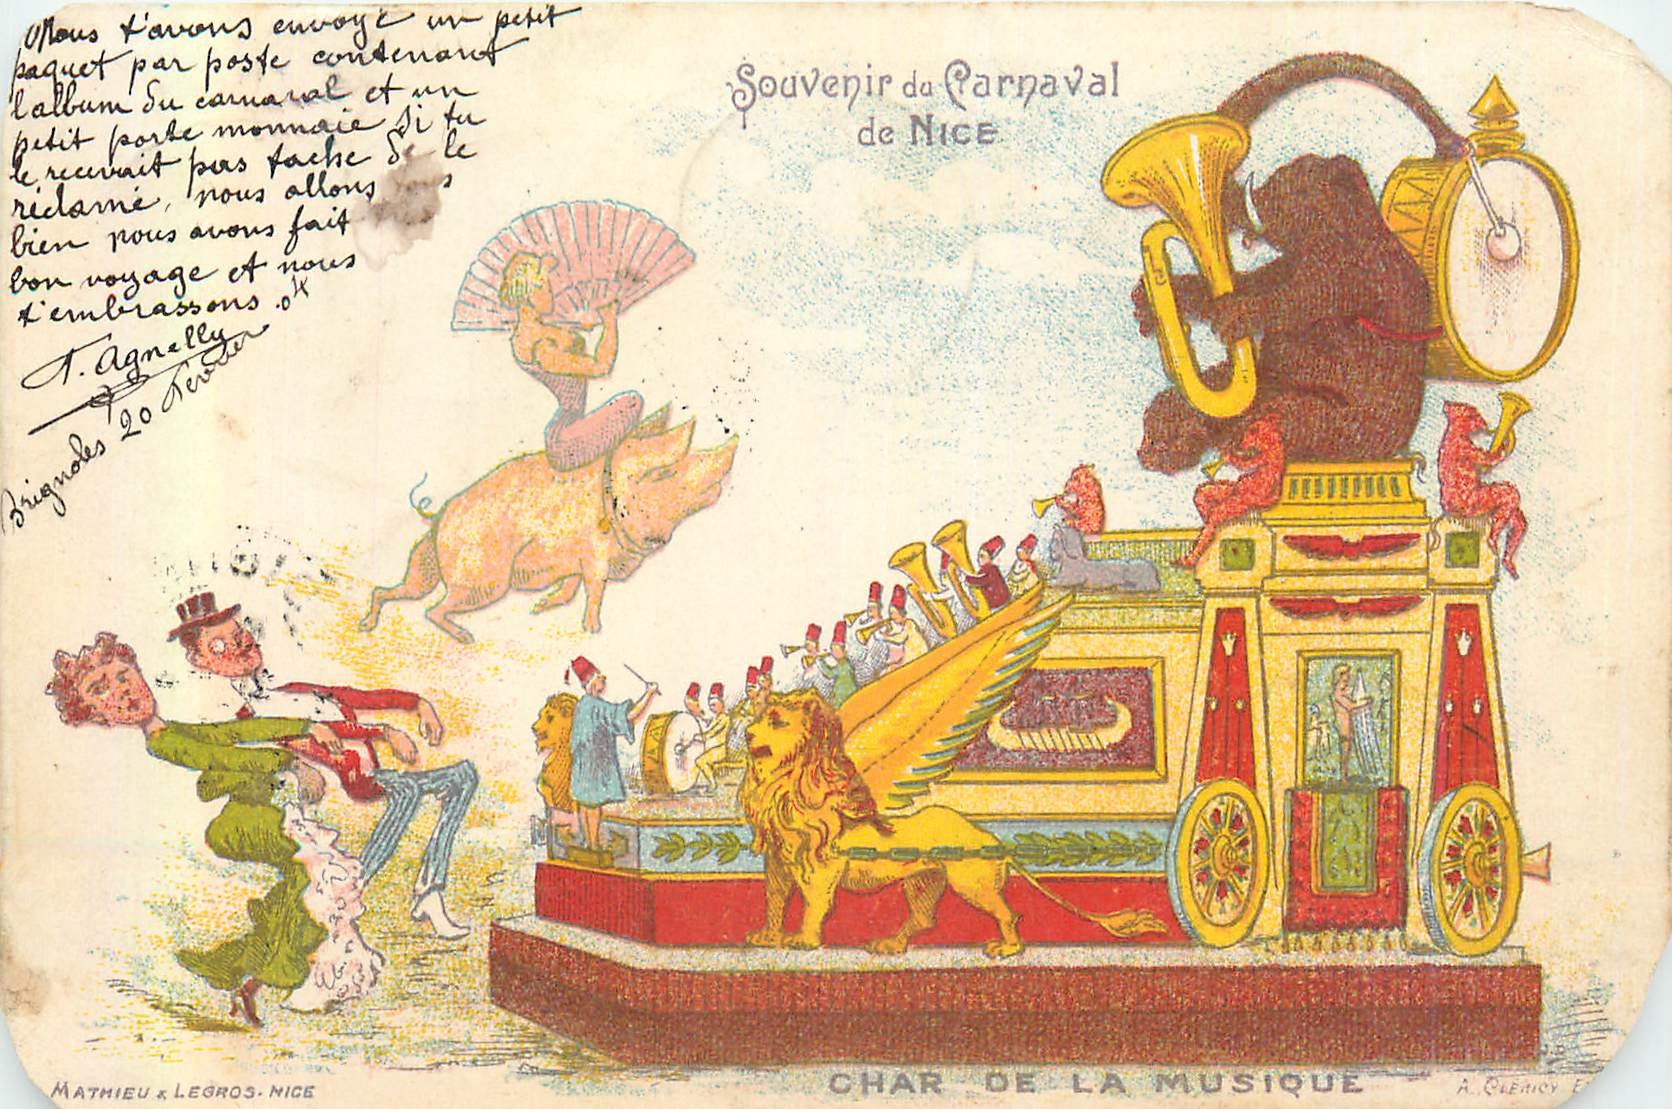 Nous t'avons envoyé un petit
paquet par poste contenant
l'album du carnaval et un
petit porte monnaie si tu
le recevait pas tache de le
réclamé, nous allons
bien nous avons fait
bon voyage et nous
t'embrassons
Agnelly
Brignoles 20 Fevrier
Souvenir du Carnaval
de NICE
MATHIEU & LEGROS. NICE
CHAR DE LA MUSIQUE
A. CLÉRICY